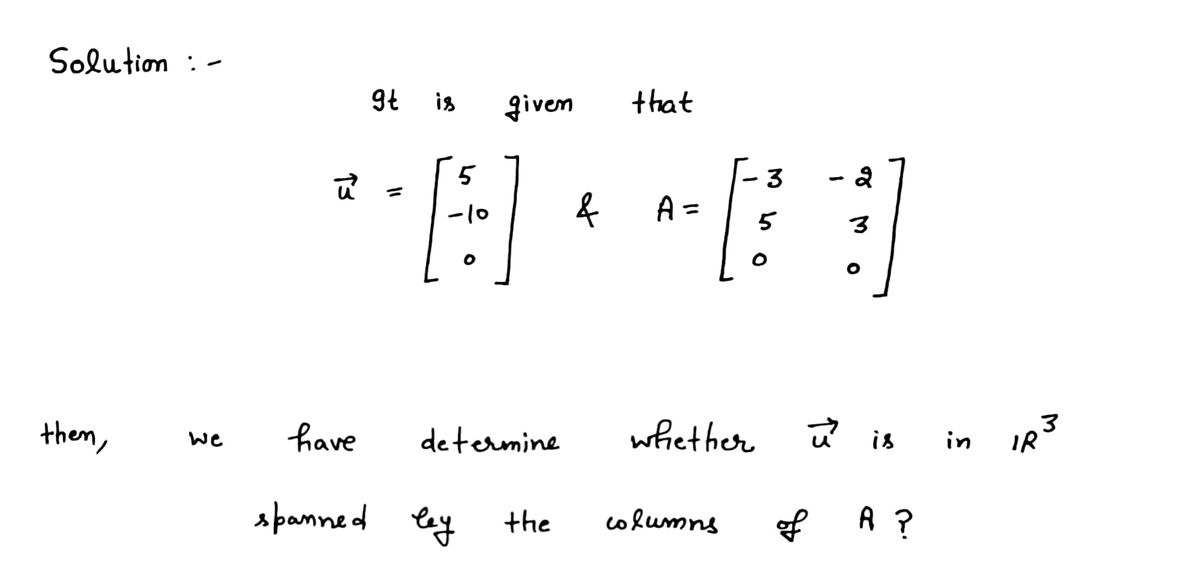 Solution :-
It is given that
u⃗ = [5 -10 0] & A = [-3 -2 5 3 0 0]
then, we have determine whether u⃗ is in IR³
spanned by the columns of A ?